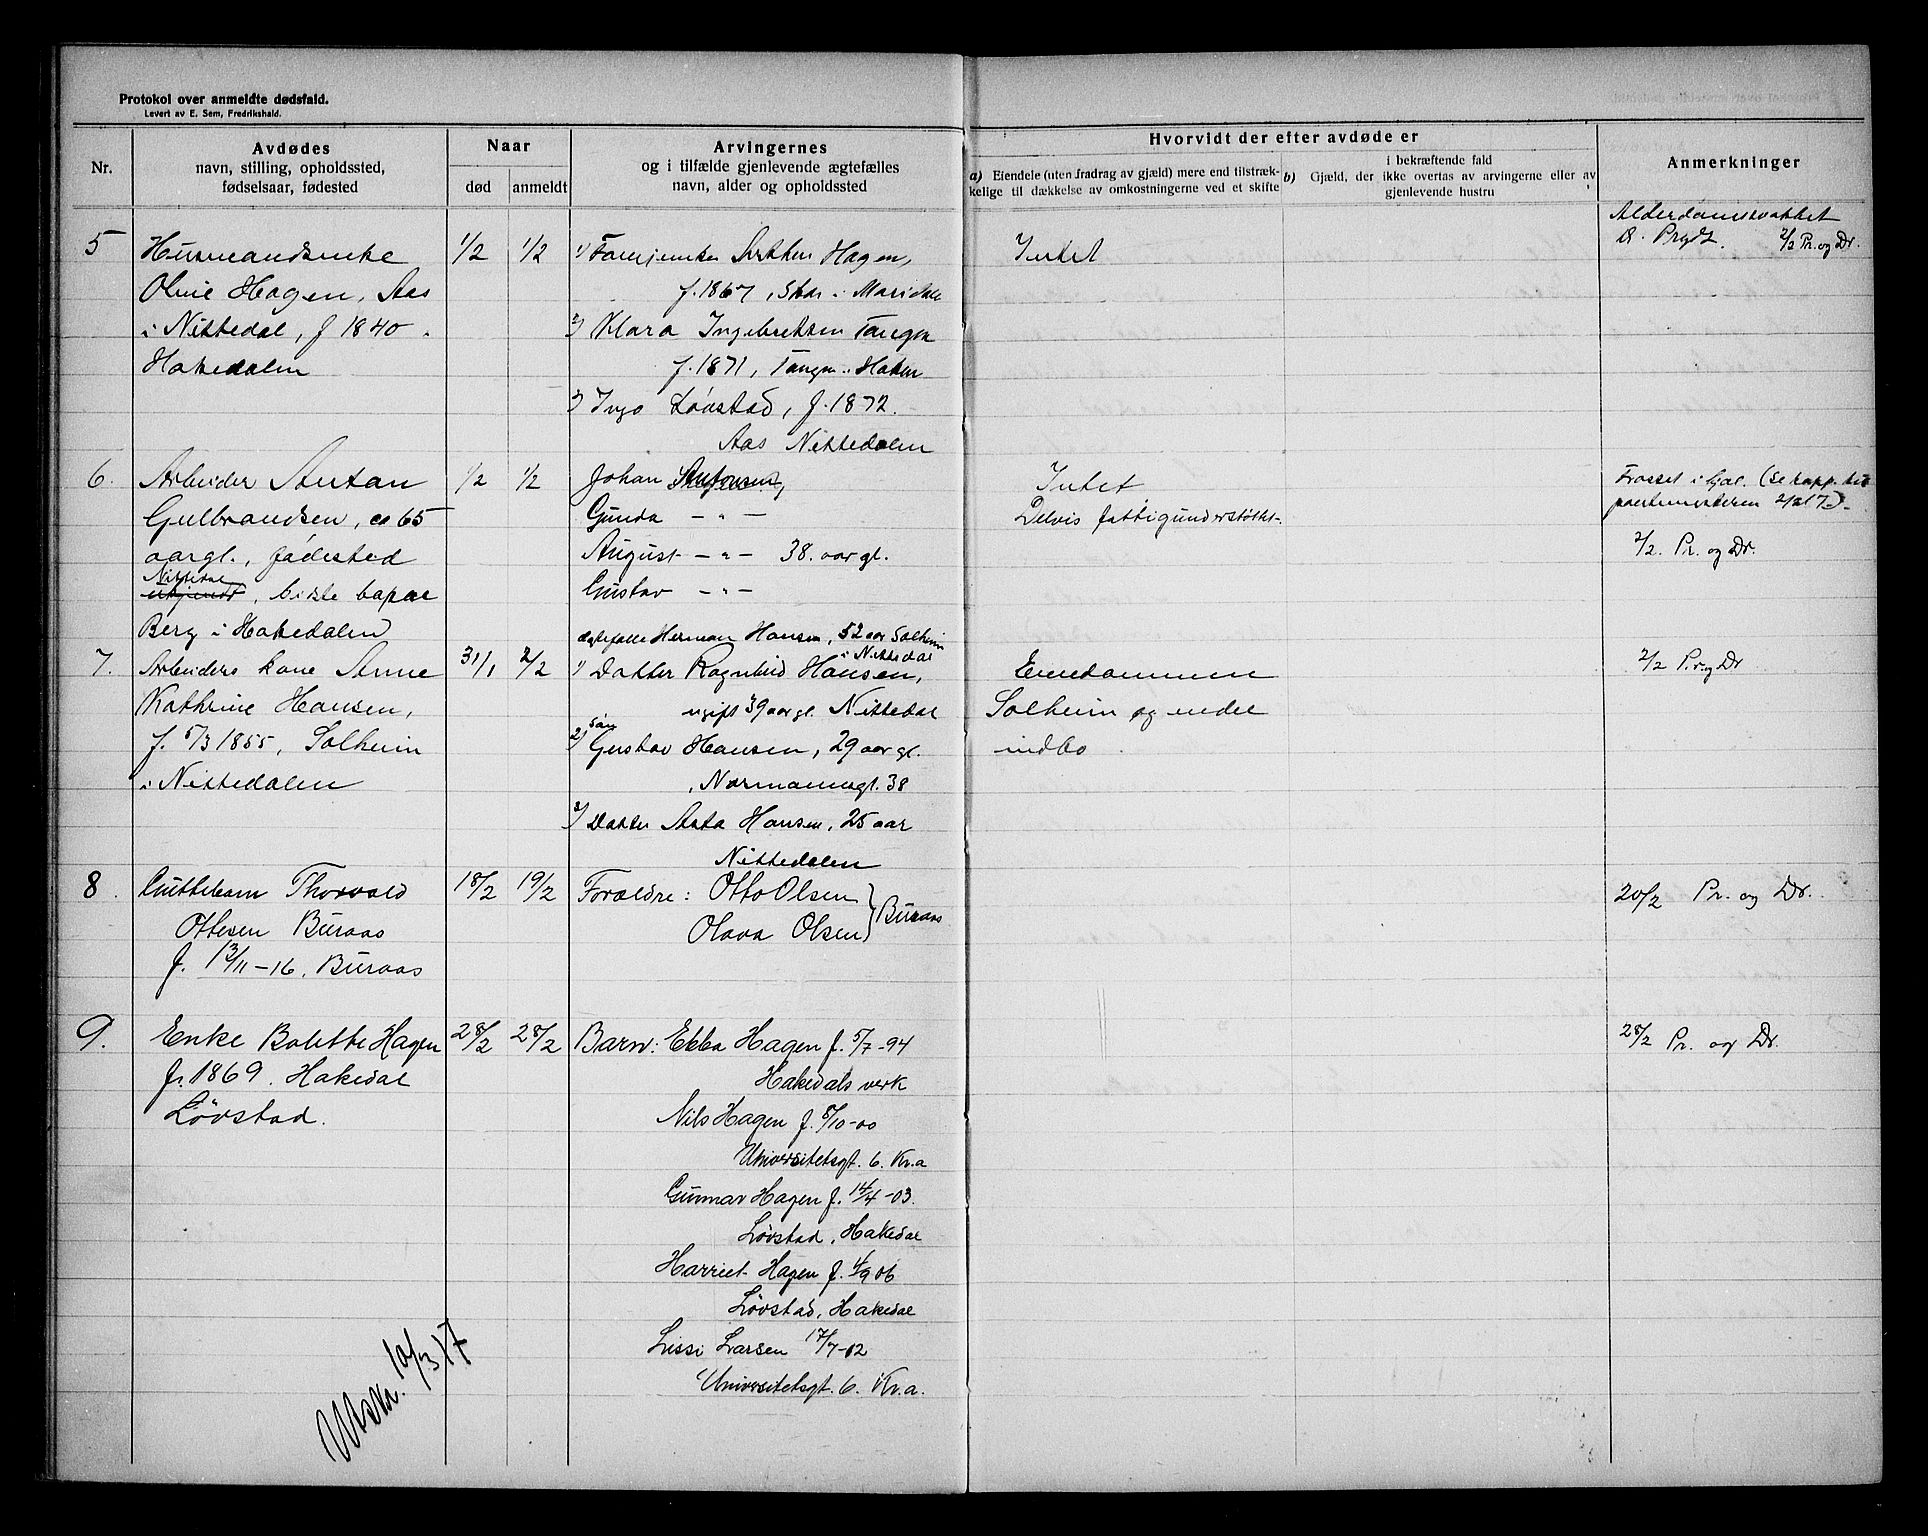 Protokol over anmeldte dødsfald.
Levert av E. Sem, Fredrikshald.
Nr.
Avdødes
navn, stilling, opholdssted,
fødselsaar, fødested
Naar
død
anmeldt
Arvingernes
og i tilfælde gjenlevende ægtefælles
navn, alder og opholdssted
Hvorvidt der efter avdøde er
a) Eiendele (uten fradrag av gjæld) mere end tilstræk-
kelige til dækkelse av omkostningerne ved et skifte
b)
i bekræftende fald
Gjæld, der ikke overtas av arvingerne eller av
gjenlevende hustru
Anmerkninger
5
Husmandsenke
Olive Hagen, Aas
i Nittedal, f 1840 .
Hakedalen
1/2
1/2
1)
Hagen,
f. 1867, i Maridalen
2) Klara Ingebretsen Tangen
f. 1871, Tangen i Haken
3) Inga Løvstad, f. 1872.
Aas Nittedalen
Intet
2/2 Pr. og Dr.
6.
Arbeider Anton
Gulbrandsen, ca 65
aar gl., fødested
Nittedal
ukjendt, bopæl
Berg i Hakedalen
1/2
1/2
Johan Antonsen,
Gunda — " —
August — " — 38. aar gl.
Gustav — " —
Intet
Delvis fattigunderstøttet
2/2. Pr. og Dr.
7.
Arbeiders kone Anne
Kathrine Hansen,
f. 5/3 1855, Solheim
i Nittedalen
31/1
2/2
Herman Hansen, 52 aar Solheim
i Nittedal
1) Datter Ragnhild Hansen,
ugift 39 aar gl. Nittedal
søn
2) Gustav Hansen, 29 aar gl.
, Normannsgt. 38
3) Datter Asta Hansen, 25 aar
Nittedalen
Eiendommen
Solheim og endel
indbo
2/2 Pr og Dr
8.
Guttebarn Thorvald
Ottesen Buraas
f. 13/11-16, Buraas
18/2
19/2
Forældre: Otto Olsen
Olava Olsen
Buraas
20/2 Pr. og Dr.
9.
Enke Bolette Hagen
f. 1869. Hakedal
Løvstad.
28/2
28/2
Barn: Ebba Hagen f. 5/7-94
Hakedals verk
Nils Hagen f. 8/10-00
Universitetsgt. 6. Kr.a
Gunnar Hagen f. 14/4-03.
Løvstad, Hakedal
Harriet Hagen f. 4/9 06
Løvstad, Hakedal
Lissi Larsen 17/7-02
Universitetsgt. 6. Kr.a.
28/2 Pr. og Dr.
10/3 17